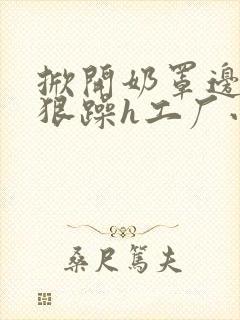 掀開奶罩邊
狠躁h工厂
桑尺篤夫